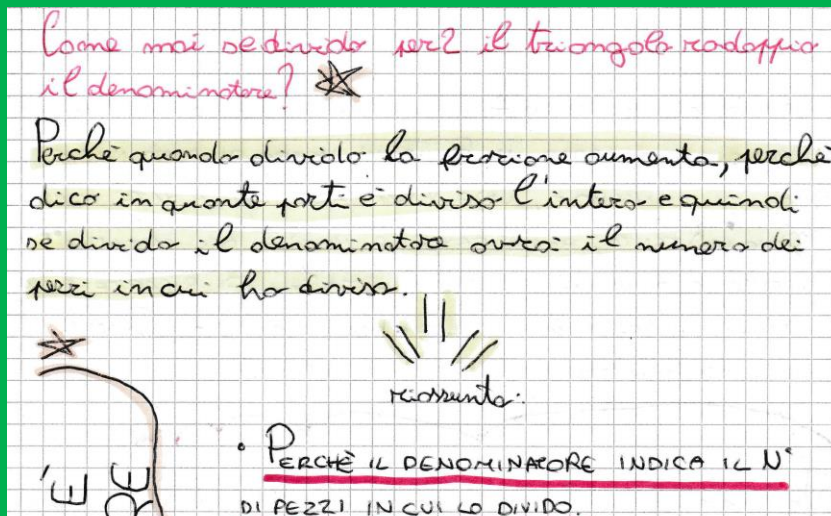 Come mai se divido per 2 il triangolo radoppio
il denominatore?
Perchè quando divido la frazione aumenta, perchè
dico in quante parti è diviso l'intero e quindi
se divido il denominatore avrai il numero dei
pezzi in cui ho diviso.
riassunto:
• PERCHÈ IL DENOMINATORE INDICA IL N°
DI PEZZI IN CUI LO DIVIDO.